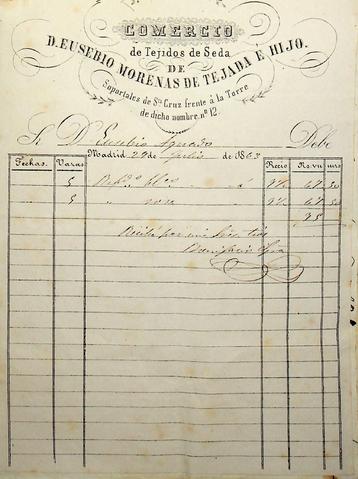 COMERCIO
de Tejidos de Seda
DE
D. EUSEBIO MORENAS DE TEJADA É HIJO.
Soportales de Sta Cruz frente á la Torre
de dicho nombre, nº 12.
Sr. D. Eusebio Aguado Debe
Madrid 29 de Julio de 1863
Fechas. Varas Precio Rs. vn
5 9½ 47 50
5 9½ 47 50
95
Recibí por mi Señor tío